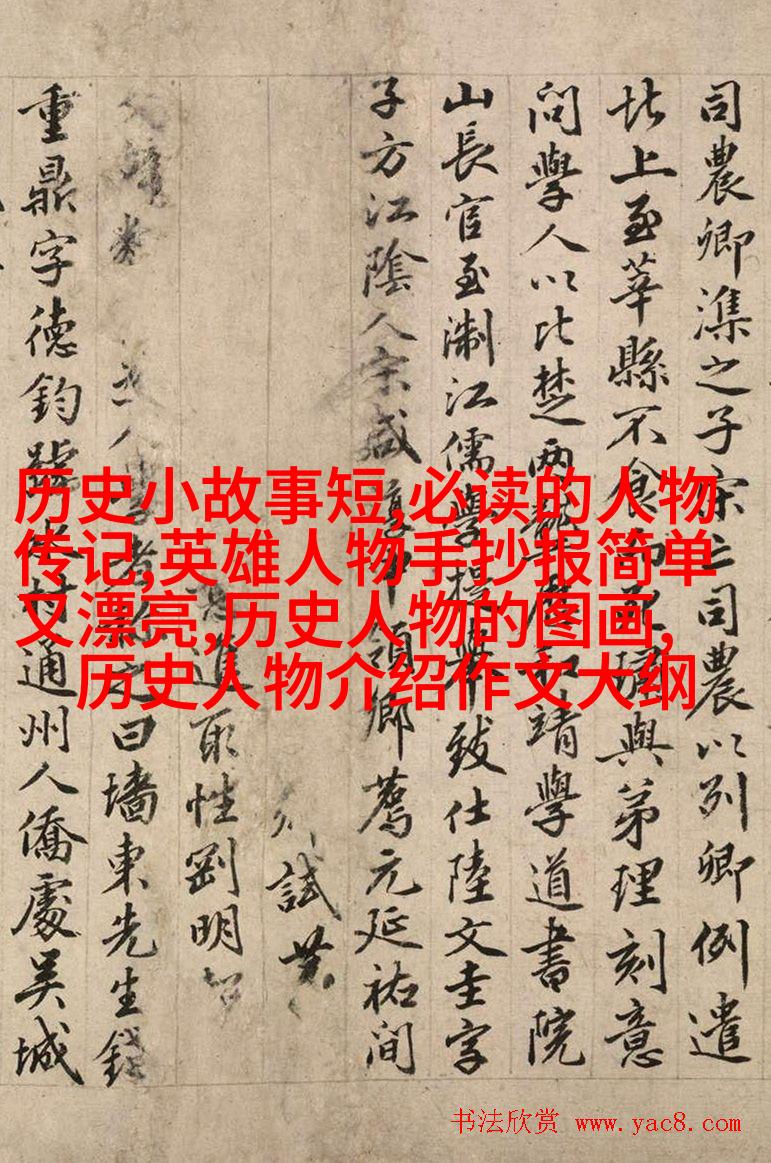 司農卿潗之子宋亡司農以列卿例遣
北上至莘縣不食而死璛與弟理刻意
問學人以比楚兩龔歷和靖學道書院
山長官至淛江儒學提舉致仕陸文圭字
子方江陰人宋咸淳中領鄉薦元延祐間
試
進取性剛明
人之曰墻東先生錢
重鼎字德鈞號水村通州人僑處吳城
历史小故事短,必读的人物
传记,英雄人物手抄报简单
又漂亮,历史人物的图画,
历史人物介绍作文大纲
书法欣赏 www.yac8.com